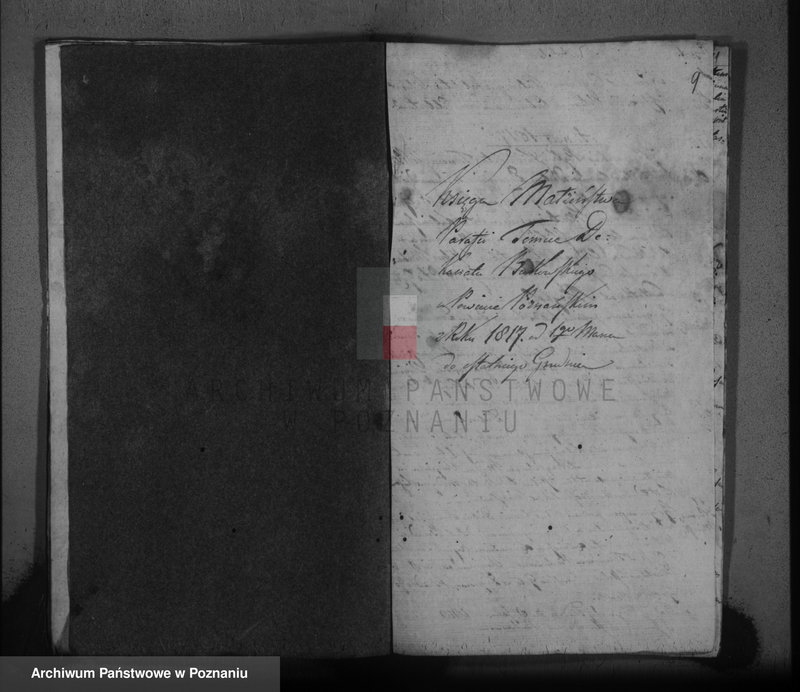 9
Księga Małżeństw
Parafii Tomice De:
kanatu Bukowskiego
w Powiecie Poznańskim
z Roku 1817. od 1go Marca
do ostatniego Grudnia
ARCHIWUM PAŃSTWOWE
W POZNANIU
Archiwum Państwowe w Poznaniu